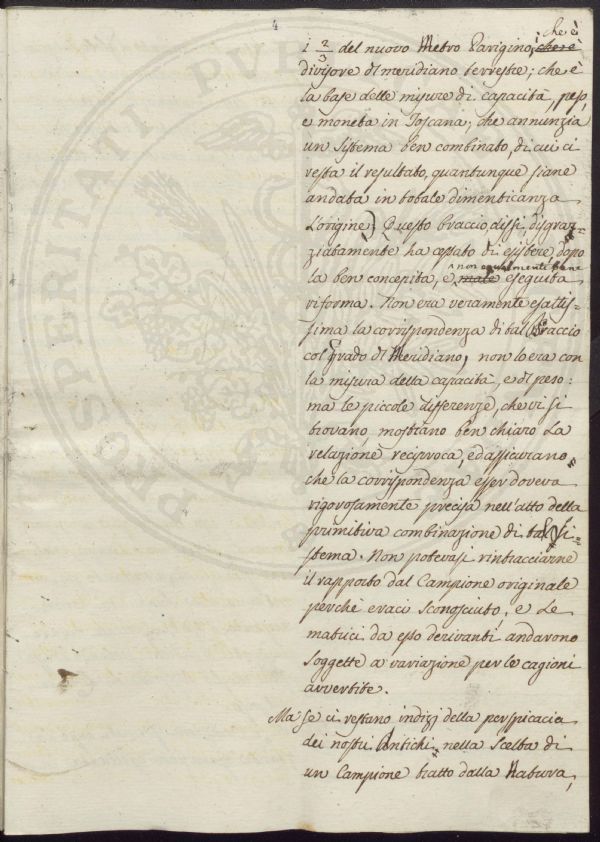 4
i 2/3 del nuovo Metro Parigino, che è
divisore del meridiano terrestre; che è
la base delle misure di capacità, peso,
e moneta in Toscana; che annunzia
un sistema ben combinato, di cui ci
resta il resultato, quantunque siane
andata in totale dimenticanza
l'origine) Questo braccio, dissi, disgraz=
ziatamente ha cessato di esistere dopo
la ben concepita, e non egualmente bene
male eseguita
riforma. Non era veramente esattis=
sima la corrispondenza di tal Braccio
col Grado del Meridiano, non lo era con
la misura della capacità, e del peso:
ma le piccole differenze, che vi si
trovano, mostrano ben chiaro la
relazione reciproca, ed assicurano
che la corrispondenza esser doveva
rigorosamente precisa nell'atto della
primitiva combinazione di tal Si=
stema. Non potevasi rintracciarne
il rapporto dal Campione originale
perchè eraci sconosciuto, e le
matrici da esso derivanti andarono
soggette a variazione per le cagioni
avvertite.
Ma se ci restano indizj della perspicacia
dei nostri Antichi nella scelta di
un Campione tratto dalla Natura,
PROSPERITATI PUBL